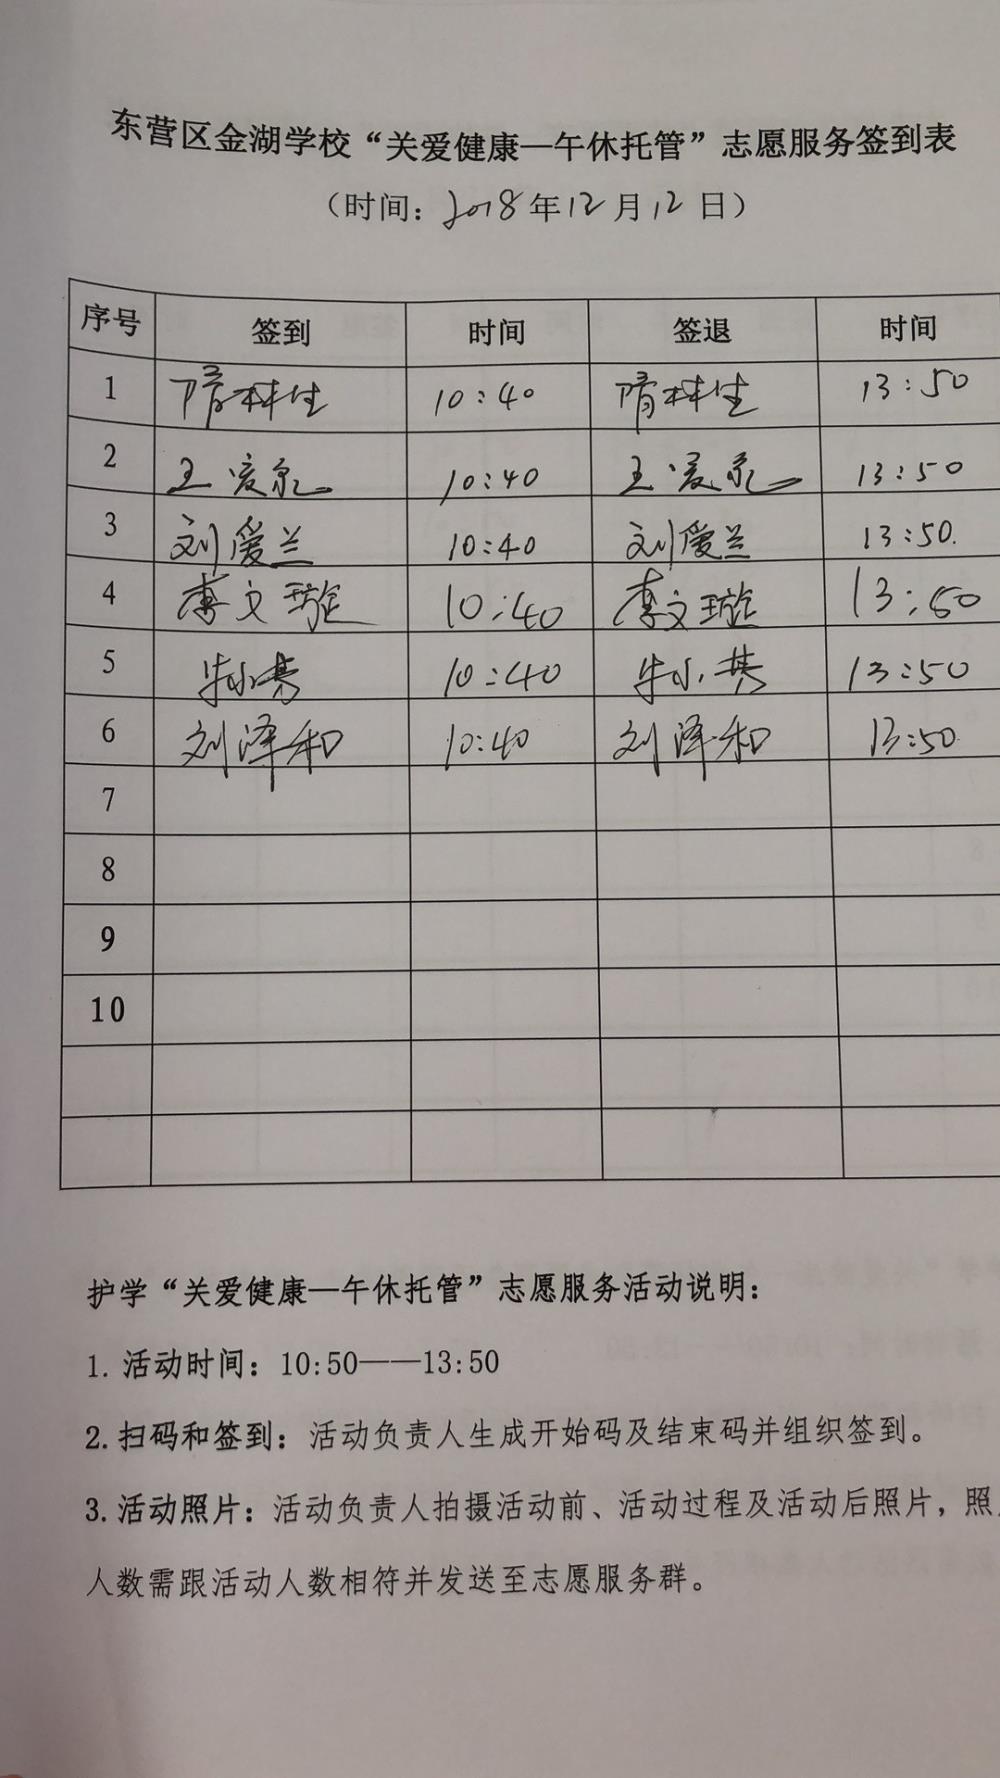 东营区金湖学校“关爱健康—午休托管”志愿服务签到表
（时间：2018年12月12日）
序号 签到 时间 签退 时间
1 隋林生 10:40 隋林生 13:50
2 王爱泉 10:40 王爱泉 13:50
3 刘爱兰 10:40 刘爱兰 13:50.
4 李文璇 10:40 李文璇 13:50
5 10:40 13:50
6 刘泽和 10:40 刘泽和 13:50
7
8
9
10
护学“关爱健康—午休托管”志愿服务活动说明：
1. 活动时间：10:50——13:50
2. 扫码和签到：活动负责人生成开始码及结束码并组织签到。
3. 活动照片：活动负责人拍摄活动前、活动过程及活动后照片，照
人数需跟活动人数相符并发送至志愿服务群。